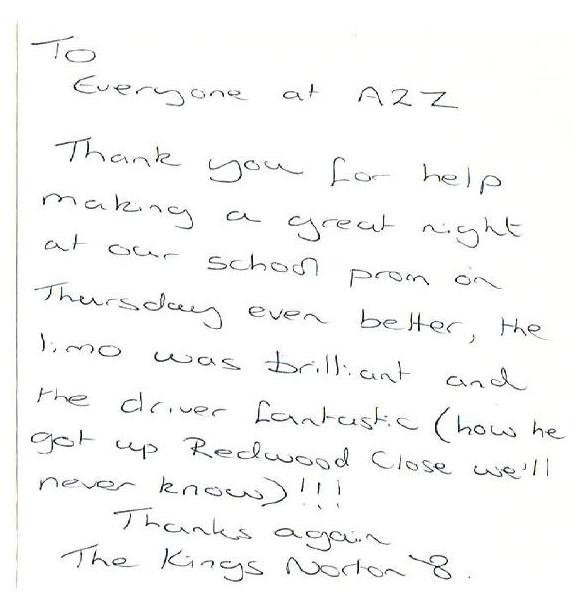 To
Everyone at A2Z
Thank you for help
making a great night
at our school prom on
Thursday even better, the
limo was brilliant and
the driver fantastic (how he
got up Redwood Close we'll
never know)!!!
Thanks again
The Kings Norton 8.